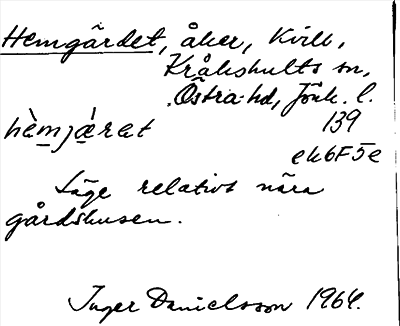 Hemgärdet, åker, Kvill,
Kråkshults sn,
Östra hd, Jönk. l.
hèmjä́rat 139
ek6F5e
Läge relativt nära
gårdshusen.
Inger Danielsson 1964.